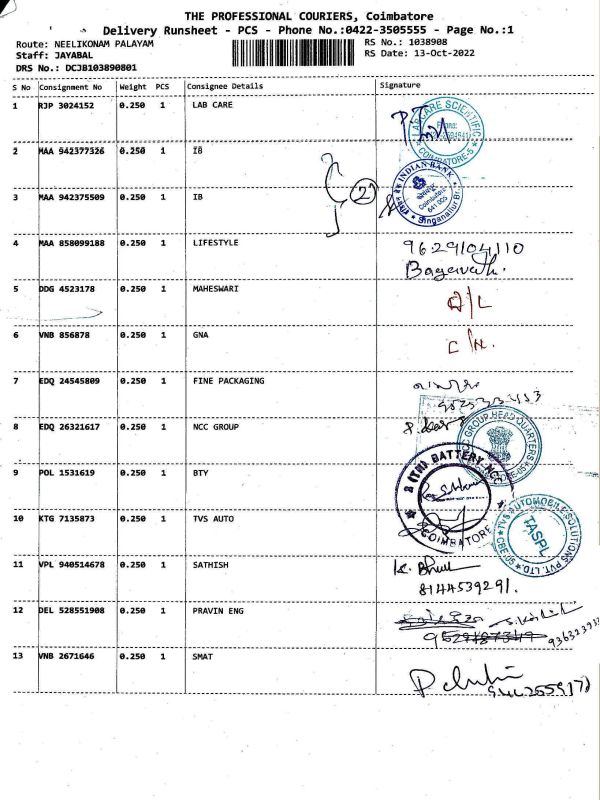 THE PROFESSIONAL COURIERS, Coimbatore
Delivery Runsheet - PCS - Phone No.:0422-3505555 - Page No.:1
Route: NEELIKONAM PALAYAM RS No.: 1038908
Staff: JAYABAL RS Date: 13-Oct-2022
DRS No.: DCJB103890801
S No Consignment No Weight PCS Consignee Details Signature
1 RJP 3024152 0.250 1 LAB CARE
LAB CARE SCIENTIFIC
COIMBATORE-5
2 MAA 942377326 0.250 1 IB
INDIAN BANK
Coimbatore
641 005
Singanallur Br.
(2)
3 MAA 942375509 0.250 1 IB
4 MAA 858099188 0.250 1 LIFESTYLE 9629104110
5 DDG 4523178 0.250 1 MAHESWARI D/L
6 VNB 856878 0.250 1 GNA
7 EDQ 24545809 0.250 1 FINE PACKAGING
8 EDQ 26321617 0.250 1 NCC GROUP
GROUP HEAD QUARTERS
9 POL 1531619 0.250 1 BTY
(TN) BATTERY NCC
COIMBATORE
10 KTG 7135873 0.250 1 TVS AUTO
TVS AUTOMOBILE SOLUTIONS PVT. LTD.
TASPL
CBE-05
11 VPL 940514678 0.250 1 SATHISH
8144539291.
12 DEL 528551908 0.250 1 PRAVIN ENG
13 VNB 2671646 0.250 1 SMAT